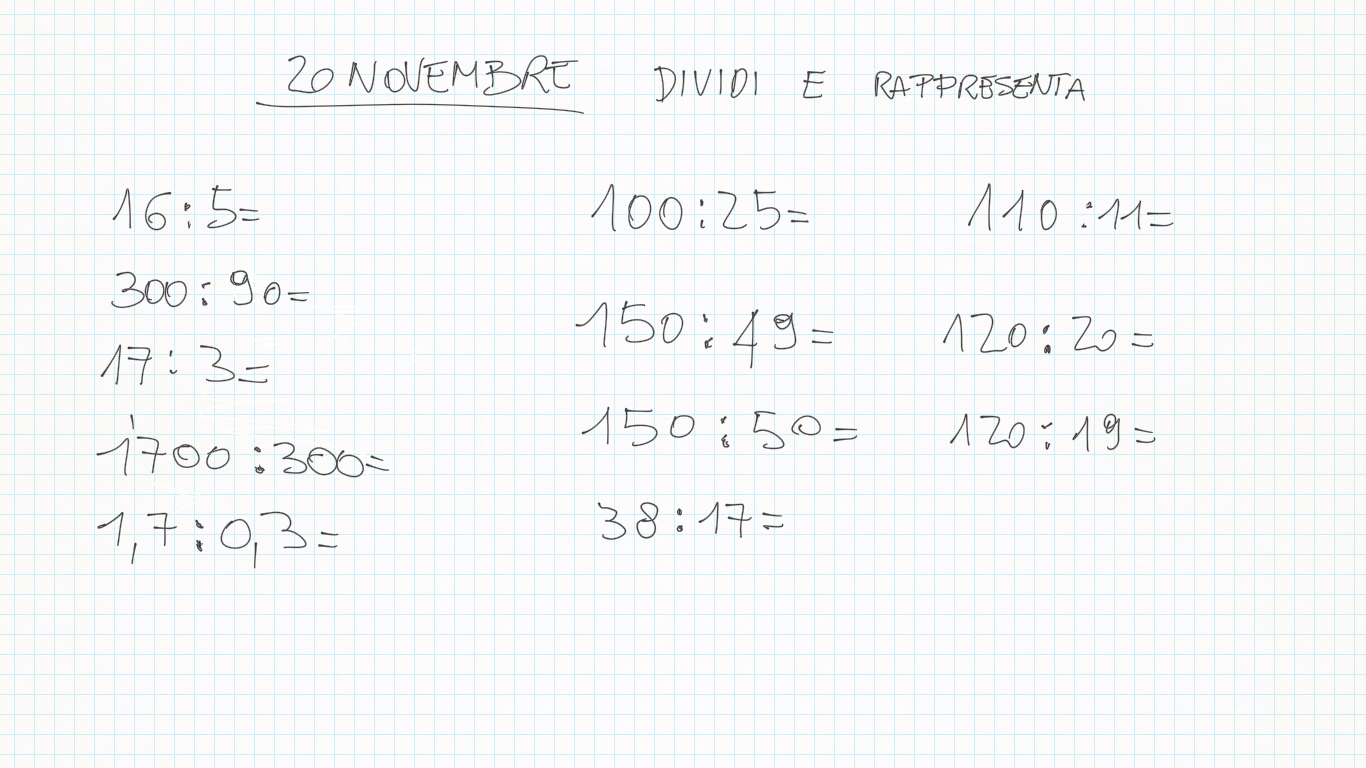 20 NOVEMBRE DIVIDI E RAPPRESENTA
16:5=
300:90=
17:3=
1700:300=
1,7:0,3=
100:25=
150:49=
150:50=
38:17=
110:11=
120:20=
120:19=